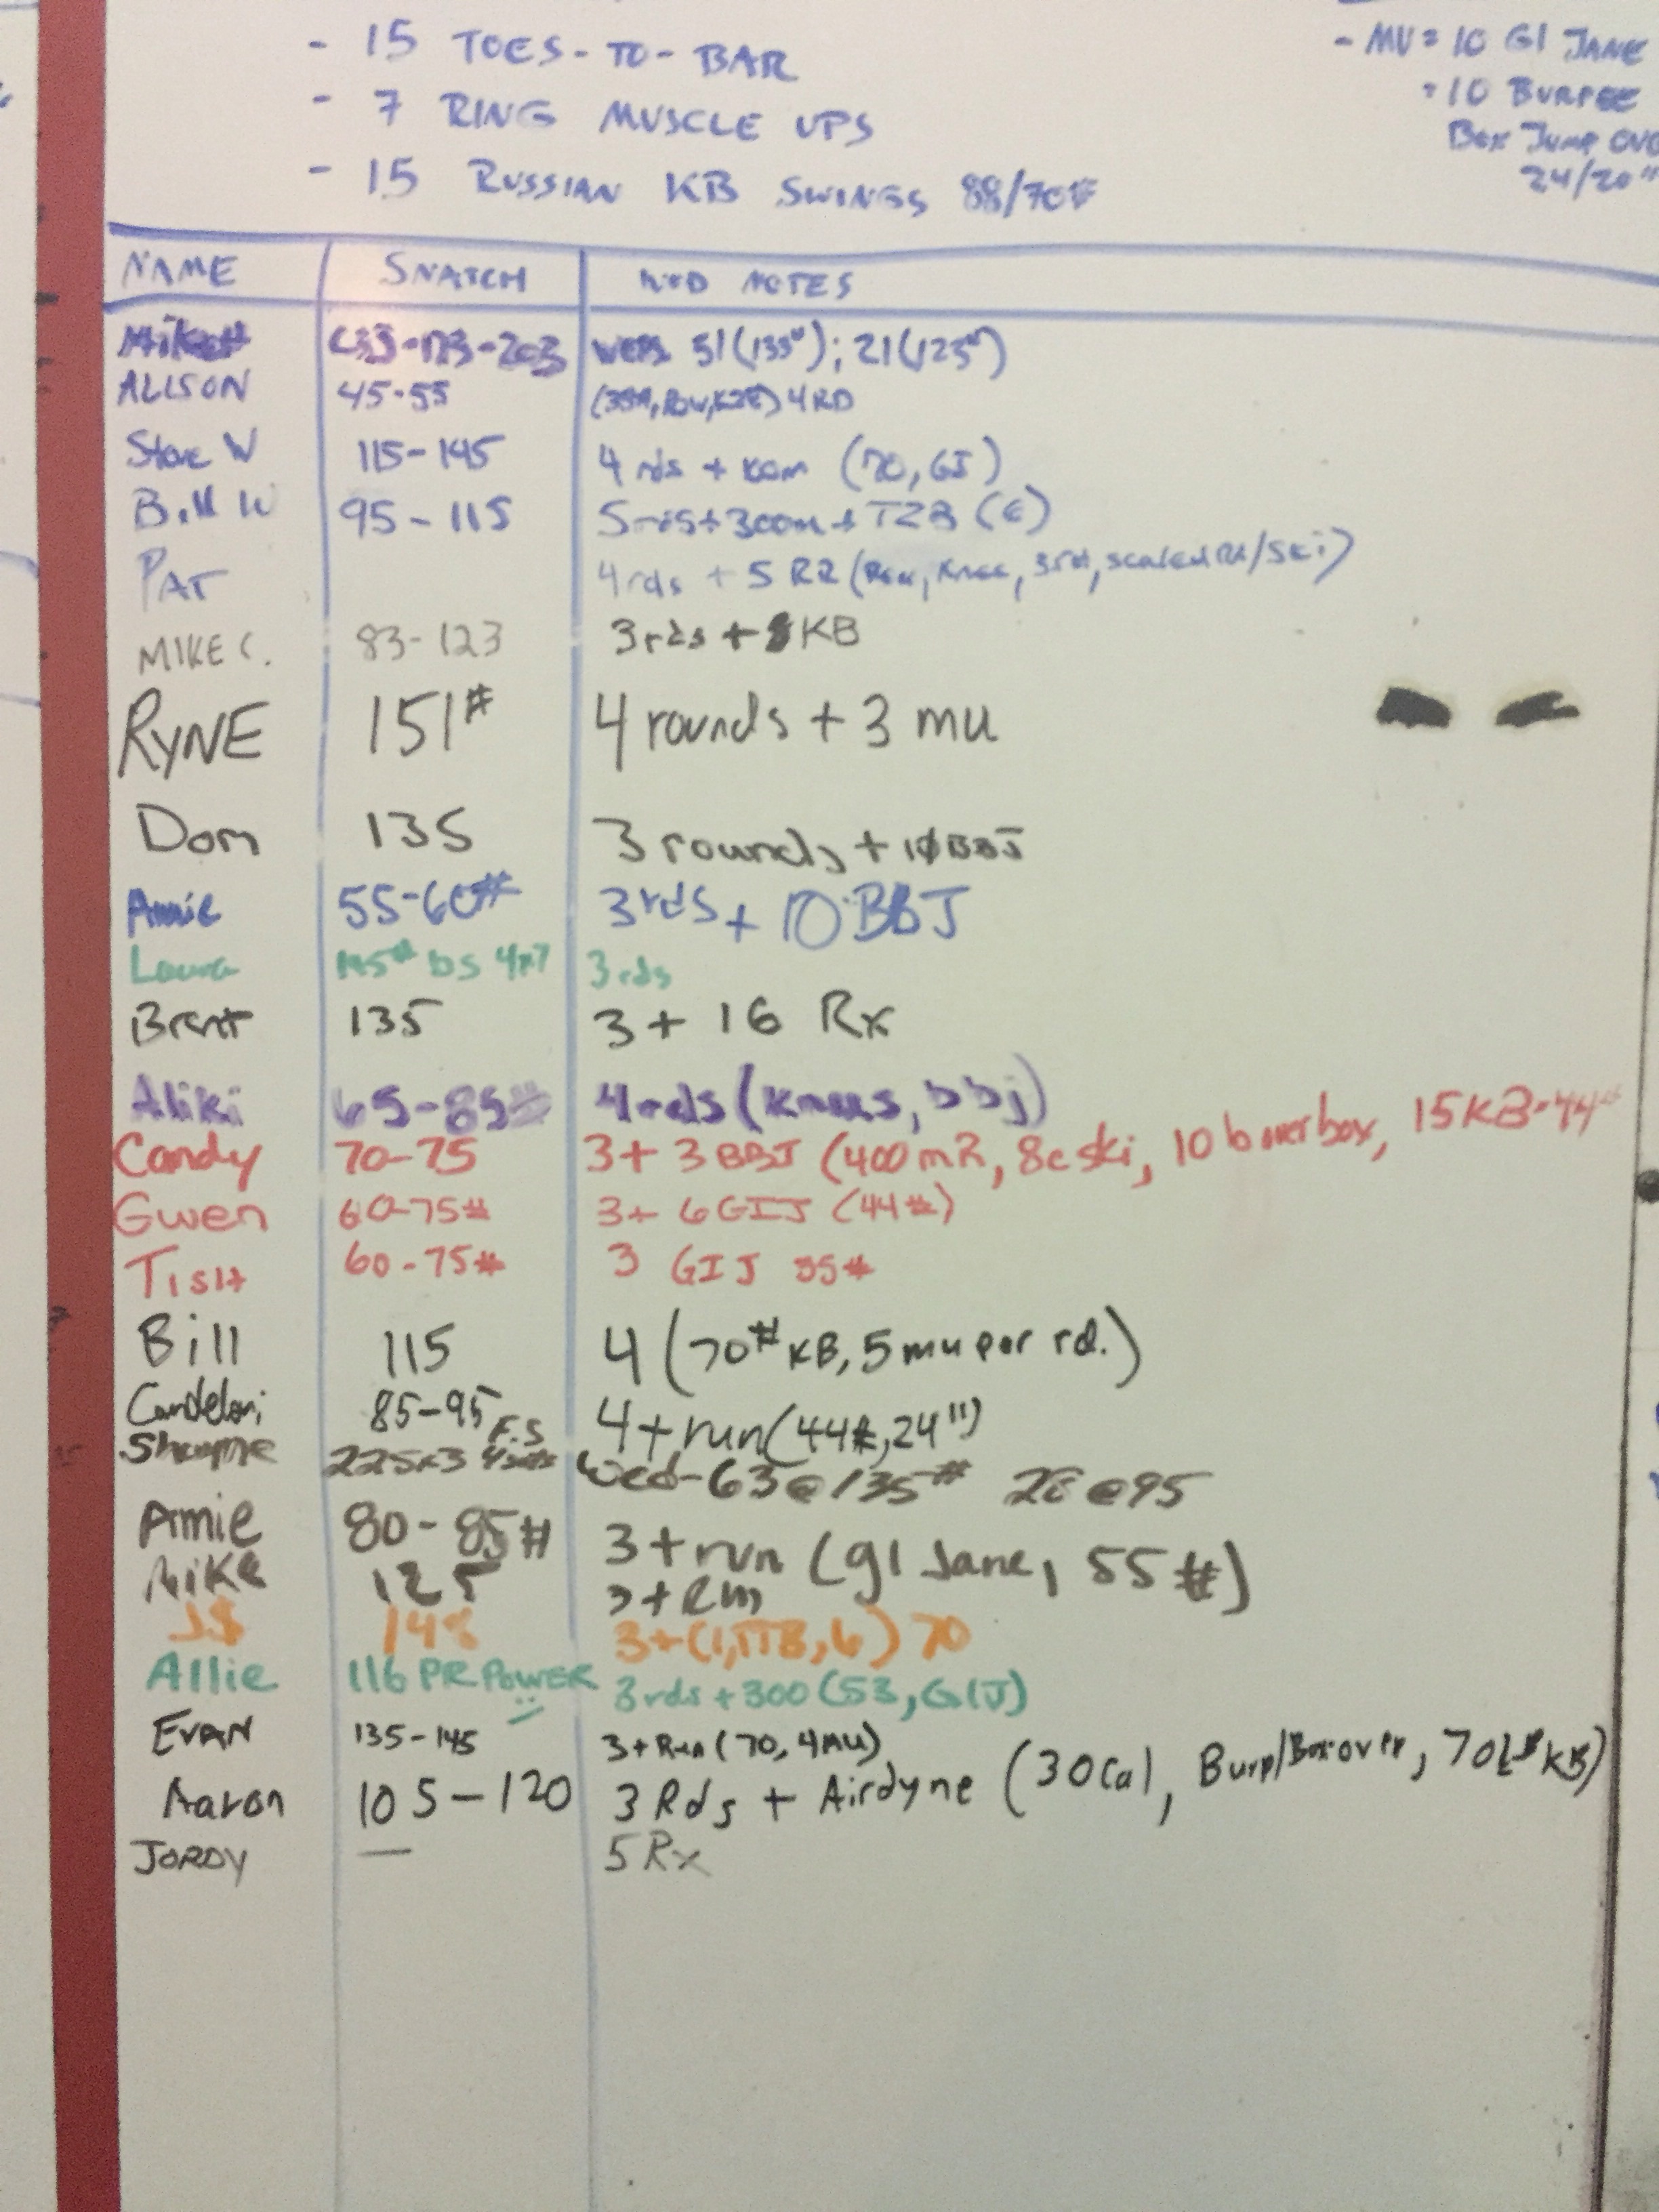 - 15 TOES-TO-BAR
- 7 RING MUSCLE UPS
- 15 RUSSIAN KB SWINGS 88/70#
- MU = 10 GI JANE
= 10 BURPEE
BOX JUMP OVE
24/20"
NAME SNATCH WOD NOTES
Mike H -173-203 51(135#); 21(125#)
ALLISON 45-55 4RD
Steve W 115-145 4 rds + (70, GJ)
Bill W 95-115 5 rds + 300m + T2B (6)
PAT 4 rds + 5 (Row, Knee, scaled /Ski)
MIKE C. 83-123 3rds + 8 KB
RYNE 151# 4 rounds + 3 mu
Dom 135 3 rounds + 10 BBJ
Annie 55-60# 3rds + 10 BBJ
Laura bs 4x7 3 rds
Brent 135 3 + 16 Rx
Aliki 65-85# 4rds (knees, bbj)
Candy 70-75 3 + 3 BBJ (400mR, 8c ski, 10 b over box, 15 KB-44#
Gwen 60-75# 3 + 6 GIJ (44#)
TISH 60-75# 3 GIJ 35#
Bill 115 4 (70# KB, 5 mu per rd.)
85-95 4 + run (44#, 24")
F.S 225x3 Wed-63@135# @95
Amie 80-85# 3 + run (gI Jane, 55#)
Mike 125 3 + Run
J$ 148 3 + (1, TTB, 6) 70
Allie 116 PR POWER 3 rds + 300 (53, GIJ)
EVAN 135-145 3 + Run (70, 4MU)
Aaron 105-120 3 Rds + Airdyne (30 Cal, Burp/Boxover, 70LB KB)
JORDY — 5 Rx